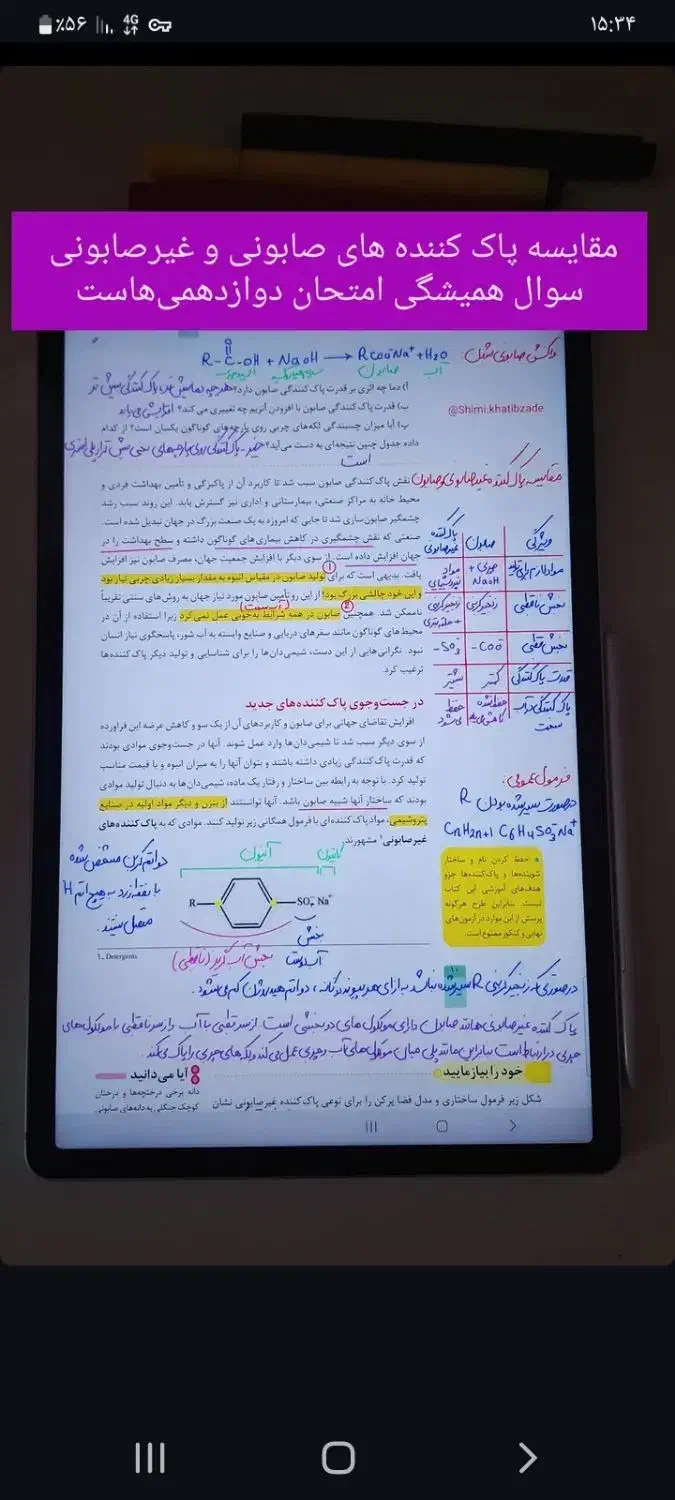 ۱۵:۳۴
4G
٪۵۶
مقایسه پاک کننده های صابونی و غیرصابونی
سوال همیشگی امتحان دوازدهمی‌هاست
واکنش صابونی شدن:
R-C-OH + NaOH → RCOO⁻Na⁺ + H₂O
O
صابون
آب
ا) دما چه اثری بر قدرت پاک کنندگی صابون دارد؟ هرچه دما بیش‌تر، قدرت پاک کنندگی بیش‌تر
ب) قدرت پاک کنندگی صابون با افزودن آنزیم چه تغییری می‌کند؟ افزایش می‌یابد
پ) آیا میزان چسبندگی لکه‌های چربی روی پارچه‌های گوناگون یکسان است؟ از کدام
داده جدول چنین نتیجه‌ای به دست می‌آید؟ خیر - پاک کنندگی روی پارچه‌های نخی بیش‌تر از پلی استری
است
@Shimi.khatibzade
مقایسه پاک کننده غیرصابونی و صابون
ویژگی
صابون
پاک کننده غیرصابونی
مواد لازم برای تولید
چربی + NaOH
مواد پتروشیمیایی
بخش ناقطبی
زنجیر کربنی
زنجیر کربنی + حلقه بنزنی
بخش قطبی
-COO⁻
-SO₃⁻
قدرت پاک کنندگی
کمتر
بیشتر
پاک کنندگی در آب سخت
حفظ نشده کاهش می‌یابد
حفظ می‌شود
نقش پاک کنندگی صابون سبب شد تا کاربرد آن از پاکیزگی و تأمین بهداشت فردی و
محیط خانه به مراکز صنعتی، بیمارستانی و اداری نیز گسترش یابد. این روند سبب رشد
چشمگیر صابون‌سازی شد تا جایی که امروزه به یک صنعت بزرگ در جهان تبدیل شده است.
صنعتی که نقش چشمگیری در کاهش بیماری‌های گوناگون داشته و سطح بهداشت را در
جهان افزایش داده است. از سوی دیگر با افزایش جمعیت جهان، مصرف صابون نیز افزایش
یافت. بدیهی است که برای ① تولید صابون در مقیاس انبوه به مقدار بسیار زیادی چربی نیاز بود
و این خود چالشی بزرگ بود؛ از این رو تأمین صابون مورد نیاز جهان به روش‌های سنتی تقریباً
ناممکن شد. همچنین ② صابون در همه شرایط به‌خوبی عمل نمی‌کرد زیرا استفاده از آن در
(آب سخت)
محیط‌های گوناگون مانند سفرهای دریایی و صنایع وابسته به آب شور، پاسخگوی نیاز انسان
نبود. نگرانی‌هایی از این دست، شیمی‌دان‌ها را برای شناسایی و تولید دیگر پاک کننده‌ها
ترغیب کرد.
در جست‌وجوی پاک کننده‌های جدید
افزایش تقاضای جهانی برای صابون و کاربردهای آن از یک سو و کاهش عرضه این فراورده
از سوی دیگر سبب شد تا شیمی‌دان‌ها وارد عمل شوند. آنها در جست‌وجوی موادی بودند
که قدرت پاک کنندگی زیادی داشته باشند و بتوان آنها را به میزان انبوه و با قیمت مناسب
تولید کرد. با توجه به رابطه بین ساختار و رفتار یک ماده، شیمی‌دان‌ها به دنبال تولید موادی
بودند که ساختار آنها شبیه صابون باشد. آنها توانستند از بنزن و دیگر مواد اولیه در صنایع
پتروشیمی، مواد پاک کننده‌ای با فرمول همگانی زیر تولید کنند. موادی که به پاک کننده‌های
غیرصابونی۱ مشهورند.
فرمول عمومی:
درصورت سیرشده بودن R
CnH2n+1 C6H4SO3⁻Na⁺
● حفظ کردن نام و ساختار
شوینده‌ها و پاک‌کننده‌ها جزو
هدف‌های آموزشی این کتاب
نیست. بنابراین طرح هرگونه
پرسش از این موارد در آزمون‌های
نهایی و کنکور ممنوع است.
آنیون
کاتیون
R
SO₃⁻ Na⁺
دو اتم کربن مشخص شده
با نقطه زرد به هیچ اتم H
متصل نیستند.
بخش آب گریز (ناقطبی)
بخش
آب دوست
1. Detergents
درصورتی‌که زنجیر کربنی R سیرشده نباشد به ازای هر پیوند دوگانه، دو اتم هیدروژن کم می‌شود.
پاک کننده غیرصابونی همانند صابون دارای مولکول های دو بخشی است. از سر قطبی با آب و از سر ناقطبی با مولکول‌های
چربی در ارتباط است بنابراین مانند پلی میان مولکول‌های آب و چربی عمل می‌کند و لکه‌های چربی را پاک می‌کند.
خود را بیازمایید
شکل زیر فرمول ساختاری و مدل فضا پرکن را برای نوعی پاک کننده غیرصابونی نشان
آیا می‌دانید
دانه برخی درختچه‌ها و درختان
کوچک جنگلی به دانه‌های صابونی